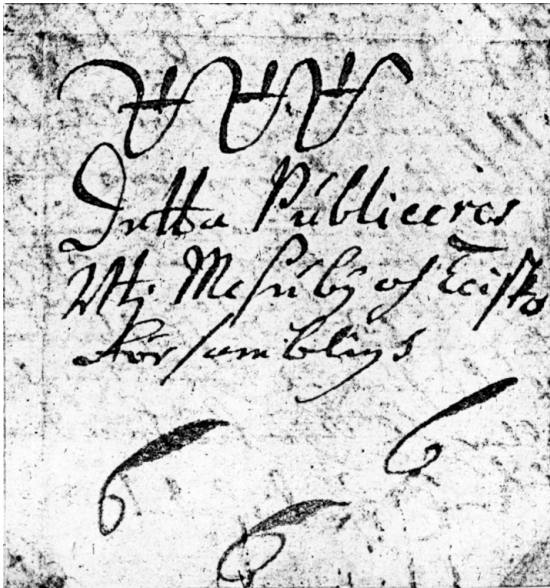 Detta Publiceres
Uti Mesuby och Teisko
Församblings